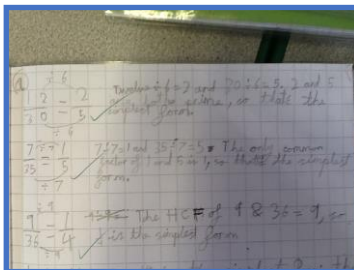 a
÷ 6
12 = 2 Twelve ÷ 6 = 2 and 30 ÷ 6 = 5, 2 and 5
30 5 so that's the
÷ 6 simplest form.
÷ 7
7 = 1 7÷7=1 and 35÷7=5. The only common
35 5 factor of 1 and 5 is 1, so that's the simplest
÷ 7 form.
÷ 9
9 = 1 The HCF of 9 & 36 = 9, so
36 4 is the simplest form
÷ 9